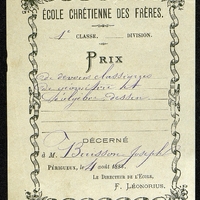 ÉCOLE CHRÉTIENNE DES FRÈRES.
1e CLASSE. DIVISION.
PRIX
de devoirs classiques
de géométrie et
d'algèbre dessin
DÉCERNÉ
À M. Bouisson Joseph
PÉRIGUEUX, le 4 août 188
LE DIRECTEUR DE L'ÉCOLE,
F. LÉONORIUS.